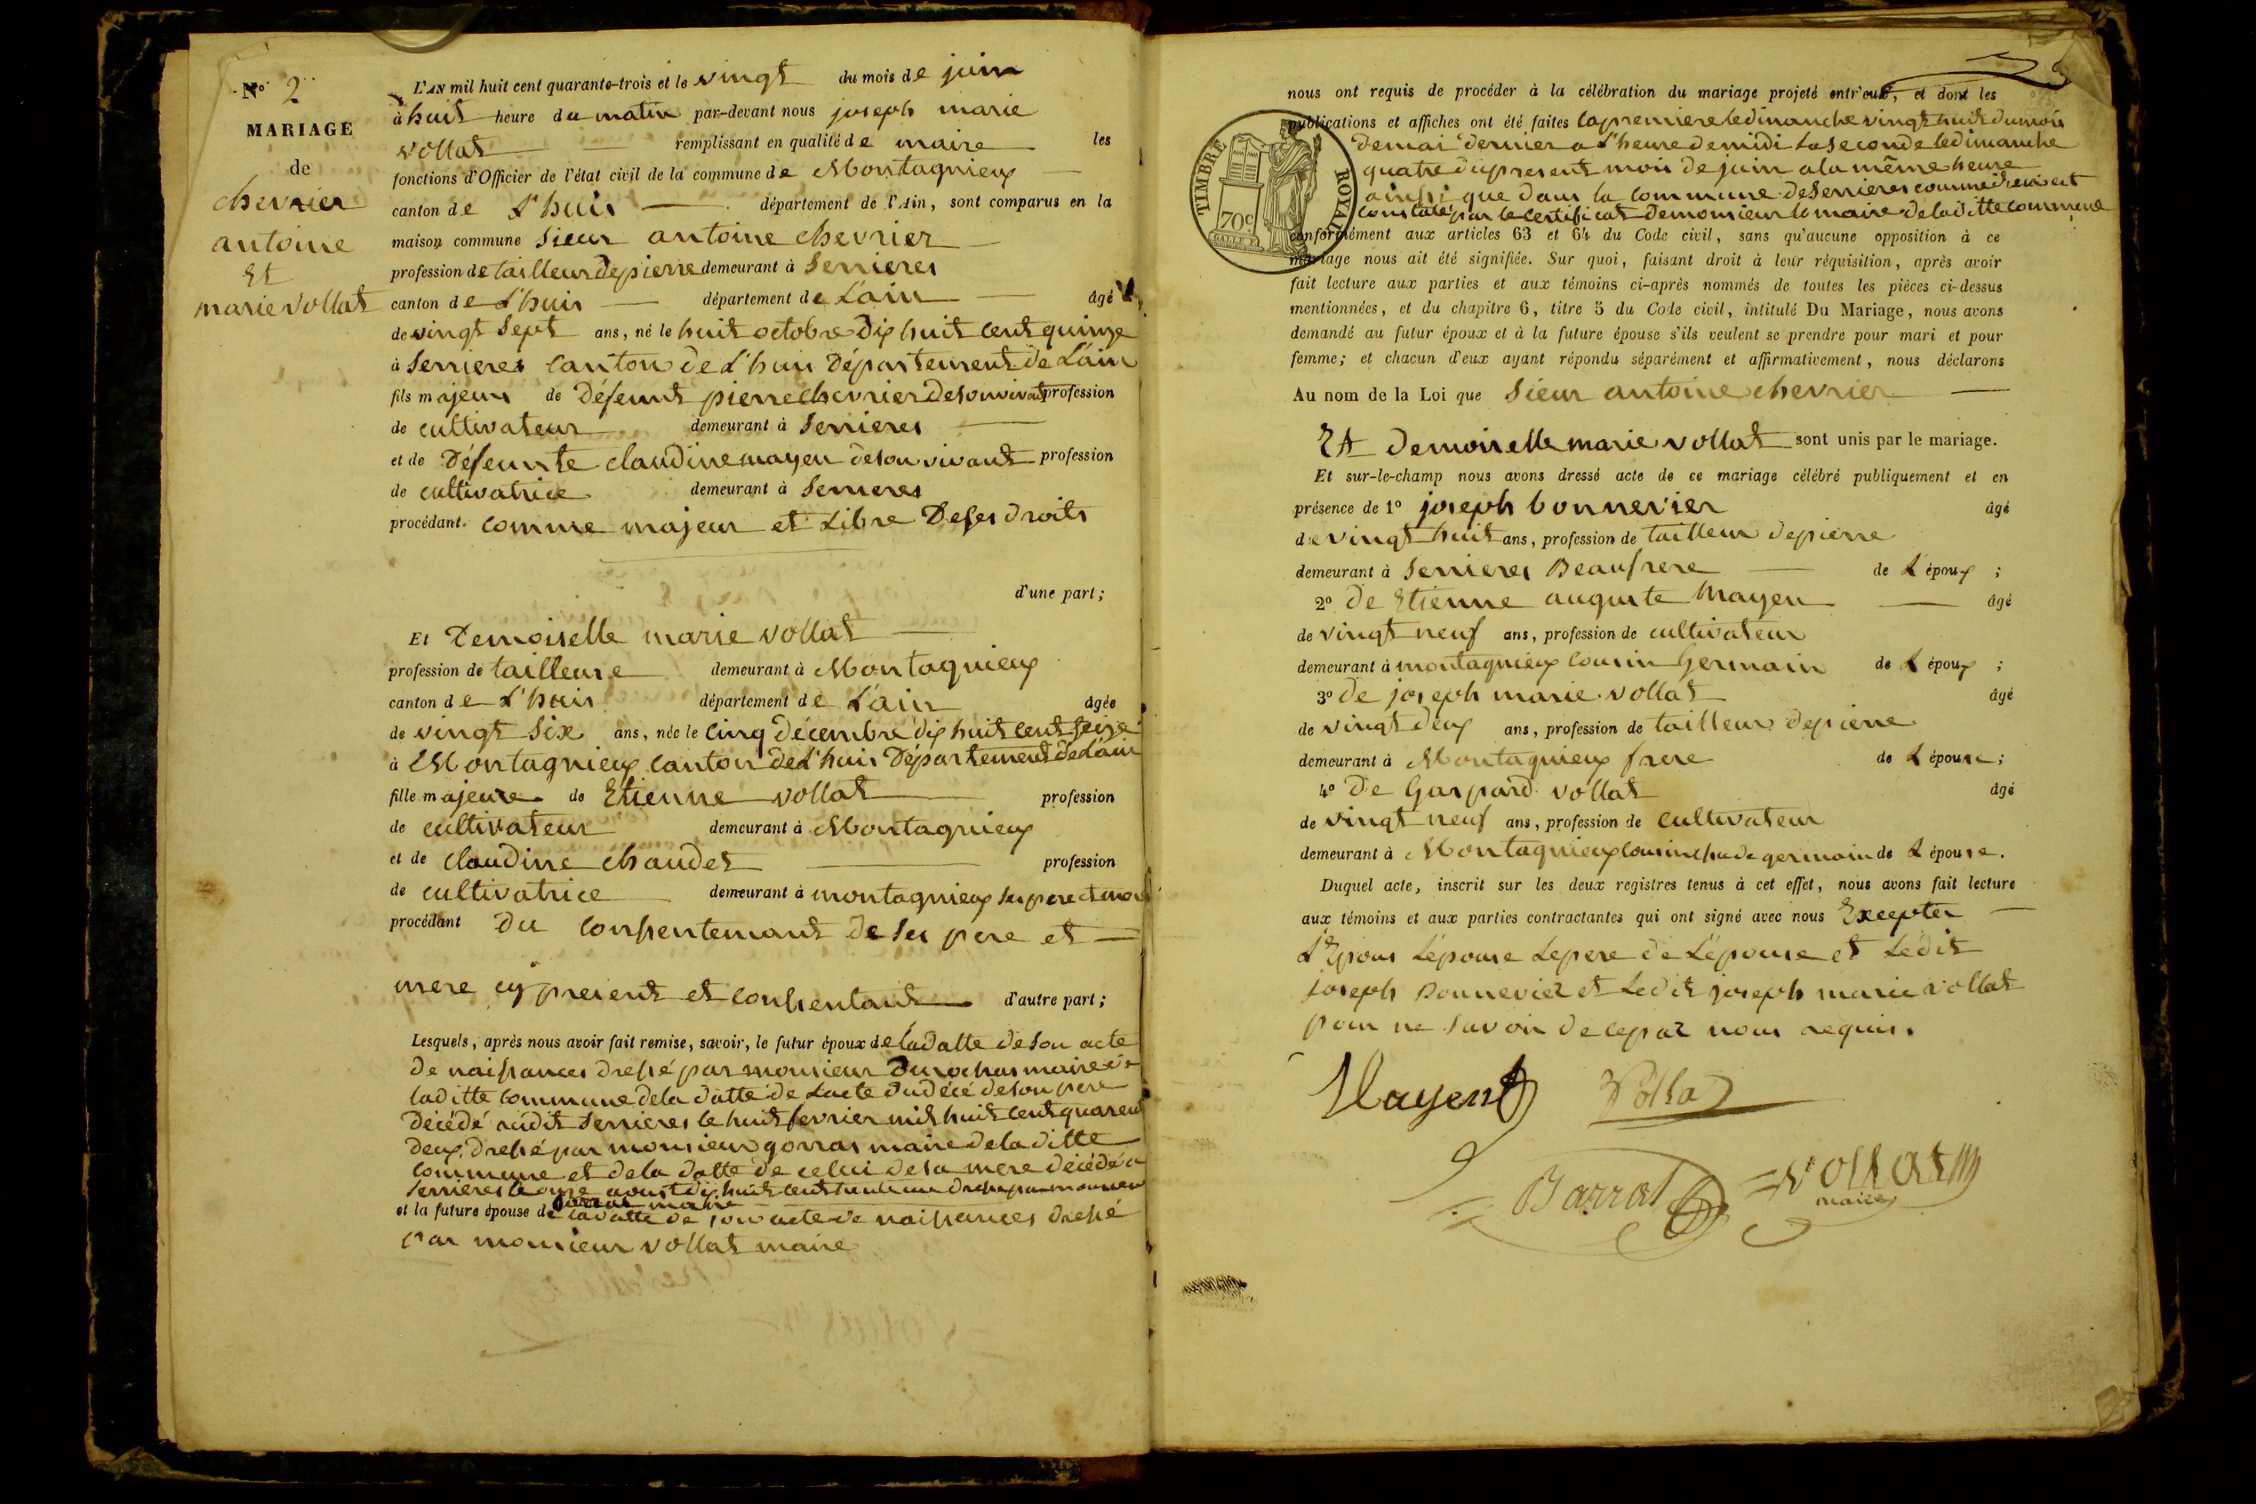 N° 2
MARIAGE
de
chevrier
antoine
Et
marie vollat
L'AN mil huit cent quarante-trois et le vingt du mois de juin
à huit heure du matin par-devant nous joseph marie
vollat remplissant en qualité de maire les
fonctions d'Officier de l'état civil de la commune de Montagnieux
canton de L'huis département de l'Ain, sont comparus en la
maison commune Sieur antoine chevrier
profession de tailleur de pierre demeurant à Serrieres
canton de L'huis département de L'ain âgé
de vingt Sept ans, né le huit octobre dix huit cent quinze
à Serrieres canton de L'huis Département de L'ain
fils majeur de Défeunt pierre chevrier de son vivant profession
de cultivateur demeurant à Serrieres
et de Défeunte claudine mayen de son vivant profession
de cultivatrice demeurant à Serrieres
procédant comme majeur et Libre De ses droits
d'une part;
Et Demoiselle marie vollat
profession de tailleuse demeurant à Montagnieux
canton de L'huis département de L'ain âgée
de vingt Six ans, née le cinq décembre dix huit cent seize
à Montagnieux canton de L'huis Département de L'ain
fille majeure de Etienne vollat profession
de cultivateur demeurant à Montagnieux
et de claudine chaudet profession
de cultivatrice demeurant à montagnieux ses pere et mere
procédant Du consentemant de ses pere et
mere cy present et consentant d'autre part;
Lesquels, après nous avoir fait remise, savoir, le futur époux de la datte de son acte
de naissances dressé par monsieur Durochas maire de
laditte commune de la datte de L'acte du décé de son pere
Décédé audit Serrieres le huit fevrier mil huit cent quarent
deux dressé par monsieur gorras maire de la ditte
commune et de la datte de celui de sa mere décédé a
Serrieres le onze aoust dix huit cent trente une dressé par monsieur
gorras maire
et la future épouse de la datte de son acte de naissances dressé
par monsieur vollat maire
nous ont requis de procéder à la célébration du mariage projeté entr'eux, et dont les
publications et affiches ont été faites la premiere le dimanche vingt huit du mois
de mai dernier a L'heure de midi La seconde le dimanche
quatre du present mois de juin a la même heure
ainssi que dans la commune de Serrieres comme il en est
constaté par le certificat de monsieur le maire de laditte commune
conformément aux articles 63 et 64 du Code civil, sans qu'aucune opposition à ce
mariage nous ait été signifiée. Sur quoi, faisant droit à leur réquisition, après avoir
fait lecture aux parties et aux témoins ci-après nommés de toutes les pièces ci-dessus
mentionnées, et du chapitre 6, titre 5 du Code civil, intitulé Du Mariage, nous avons
demandé au futur époux et à la future épouse s'ils veulent se prendre pour mari et pour
femme; et chacun d'eux ayant répondu séparément et affirmativement, nous déclarons
Au nom de la Loi que Sieur antoine chevrier
Et demoiselle marie vollat sont unis par le mariage.
Et sur-le-champ nous avons dressé acte de ce mariage célébré publiquement et en
présence de 1° joseph bonnevier âgé
de vingt huit ans, profession de tailleur de pierre
demeurant à Serrieres Beaufrere de L'époux ;
2° de Etienne auguste Mayen âgé
de vingt neuf ans, profession de cultivateur
demeurant à montagnieux cousin Germain de L'époux ;
3° de joseph marie vollat âgé
de vingt deux ans, profession de tailleur de pierre
demeurant à Montagnieux frere de L'épouse ;
4° de Gaspard vollat âgé
de vingt neuf ans, profession de cultivateur
demeurant à Montagnieux cousin germain de L'épouse.
Duquel acte, inscrit sur les deux registres tenus à cet effet, nous avons fait lecture
aux témoins et aux parties contractantes qui ont signé avec nous Excepter
L'Epoux L'épouse Le pere de L'épouse et Ledit
joseph Bonnevier et Ledit joseph marie vollat
pour ne savoir de ce par nous requis.
Mayent Volla
Barrat Vollat
maire
TIMBRE ROYAL
70c